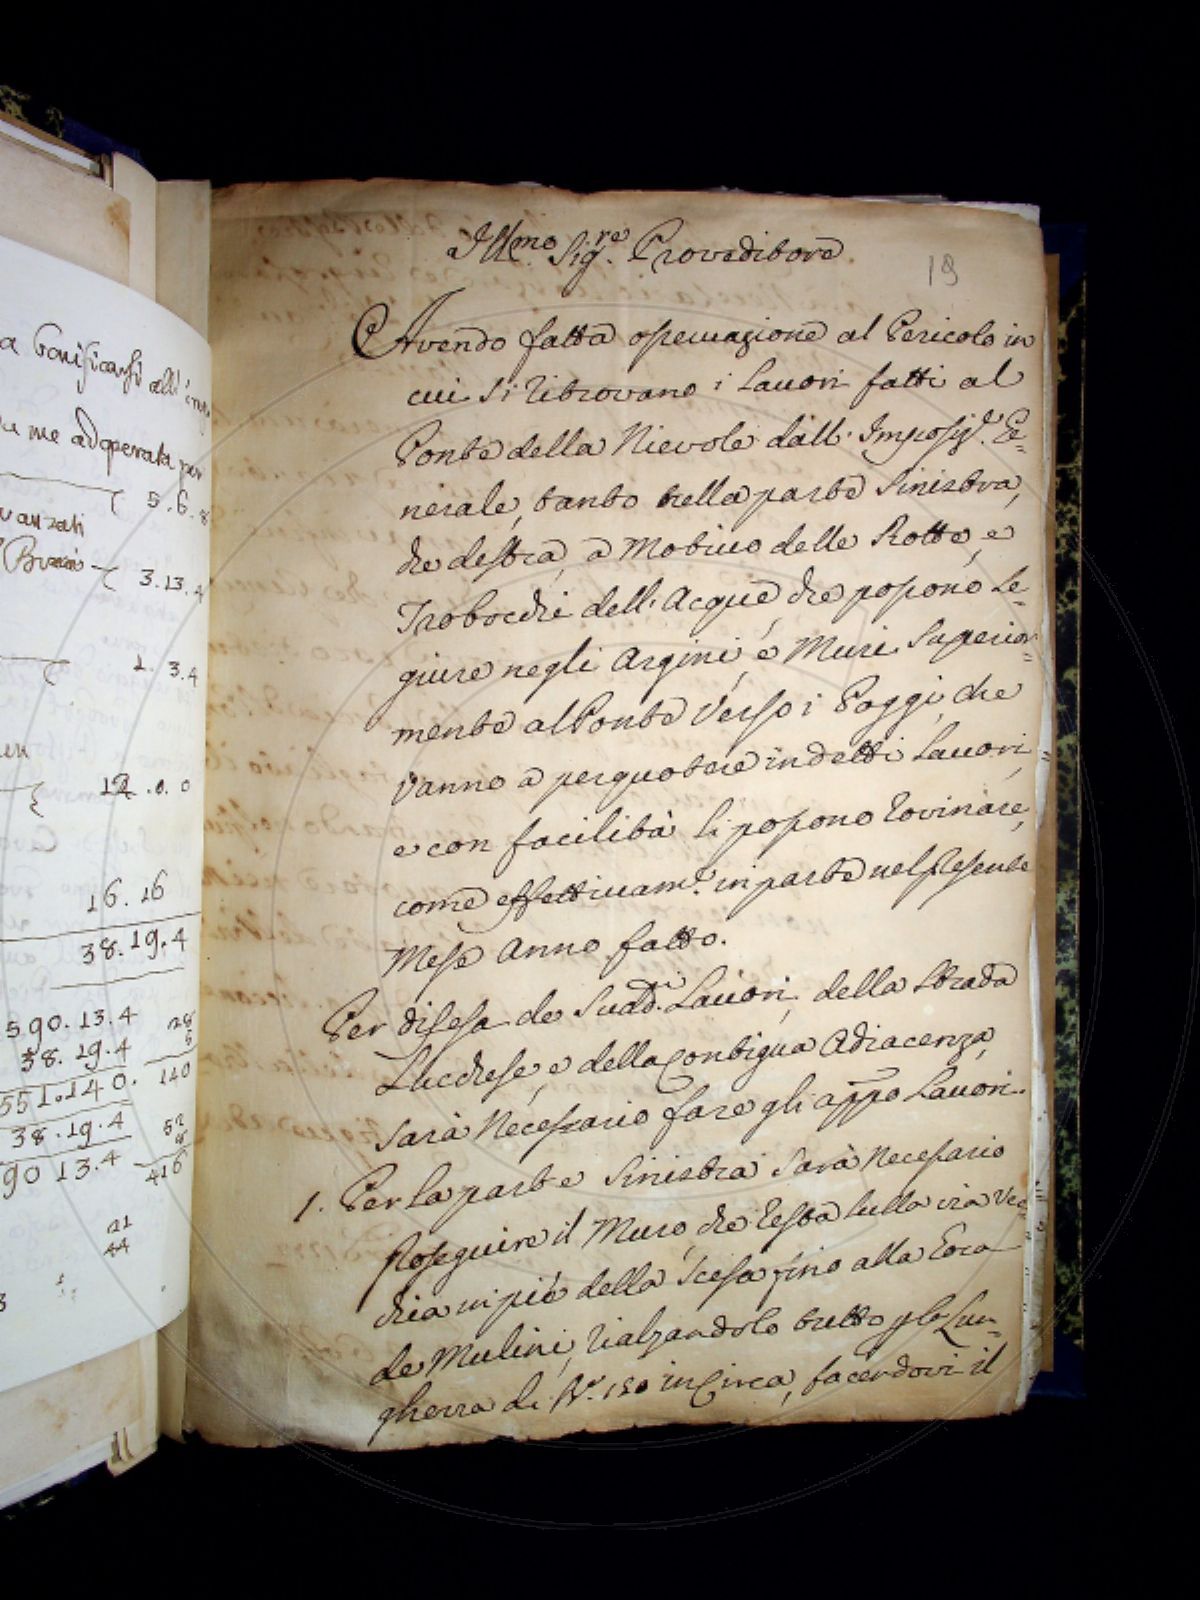 a bonificarsi all'
da me adoperata per
5.6.8
avanzati
3.13.4
1.3.4
12.0.0
16.16
38.19.4
590.13.4
38.19.4
551.14.0
38.19.4
90 13.4
28
5
140
52
8
416
21
44
Ill.mo Sig.re Proveditore
19
Avendo fatta osservazione al Pericolo in
cui si ritrovano i Lavori fatti al
Ponte della Nievole dall' Imposiz.e Ge=
nerale, tanto nella parte Sinistra,
che destra, a Motivo delle Rotte, e
Trabocchi dell' Acque che possono se=
guire negli Argini, e Muri Superior=
mente al Ponte verso i Poggi, che
vanno a perquotere in detti Lavori,
e con facilità li possono rovinare,
come effettivam.e in parte nel presente
Mese Anno fatto.
Per difesa de Sudd.i Lavori, della Strada
Lucchese, e della Contigua Adiacenza,
sarà Necessario fare gli app.o Lavori.
1. Per la parte Sinistra sarà necessario
Proseguire il Muro che resta sulla via Vec=
chia in piè della Scesa fino alla Gora
de Mulini, rialzandolo tutto p la Lun=
ghezza di B.a 150 in Circa, facendovi il